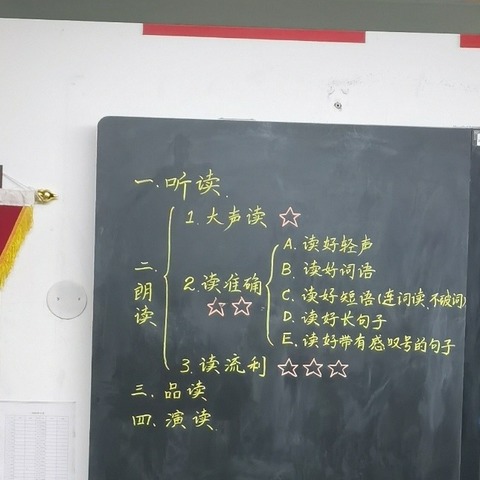 一.听读.
二.朗读
1.大声读 ☆
2.读准确 ☆☆
A.读好轻声
B.读好词语
C.读好短语(连词读、不破词)
D.读好长句子
E.读好带有感叹号的句子
3.读流利 ☆☆☆
三.品读
四.演读.